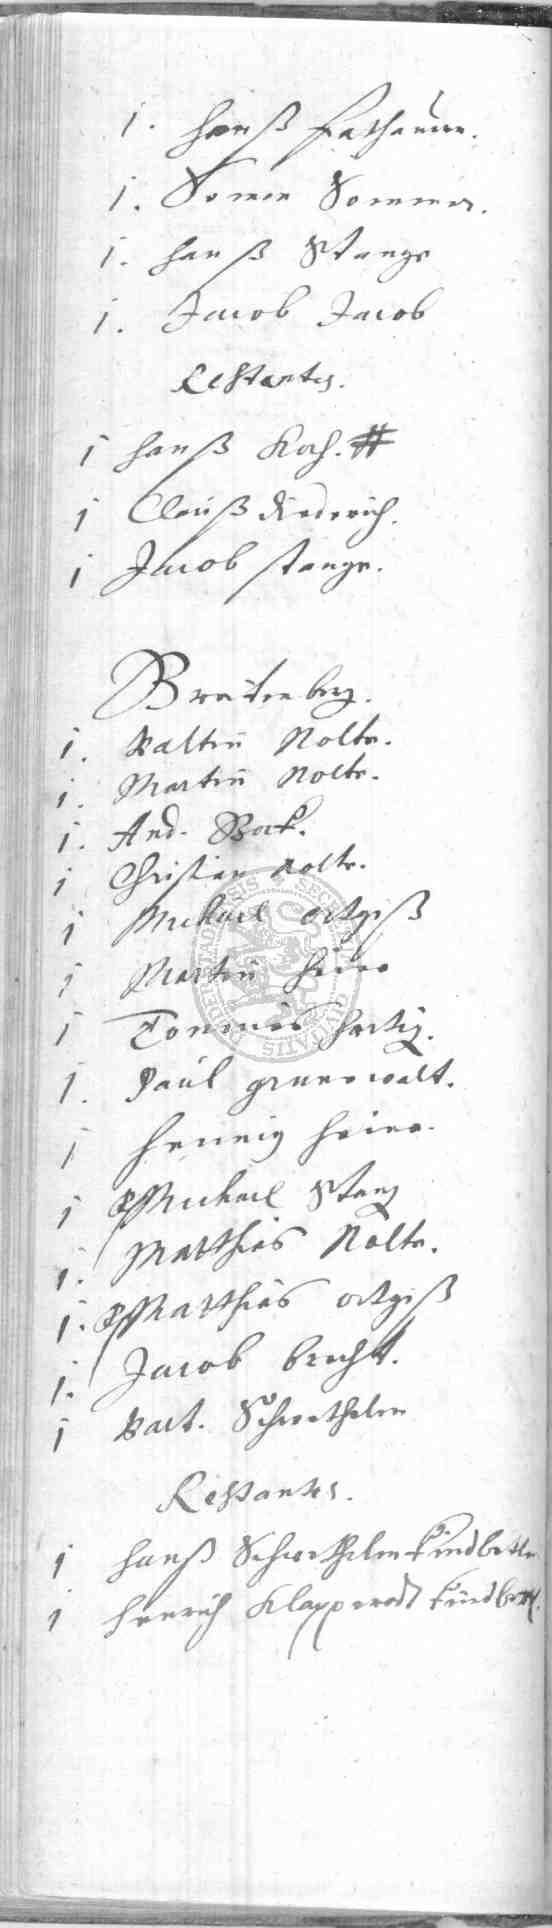 1. Hanß Fathauer.
1. Simon Sommer.
1. Hanß Stange
1. Jacob Jacob
Restantes.
1 Hanß Koch. #
1 Clauß Diederich.
1 Jacob Stange.
Breitenberg.
1. Valtin Nolte.
1. Martin Nolte.
1. And. Bock.
1 Christian Nolte.
1 Michael Ortgiß
1 Martin Heise
1 Tonnies Hartig.
1. Paul grunewalt.
1 Hennig Heise.
1 Michael Stang
1. Matthias Nolte.
1. Matthias ortgiß
1. Jacob brecht.
1 Bart. Schwethelm
Restantes.
1 Hanß Schwethelm Kindbette
1 Henrich Klapprodt Kindbett.